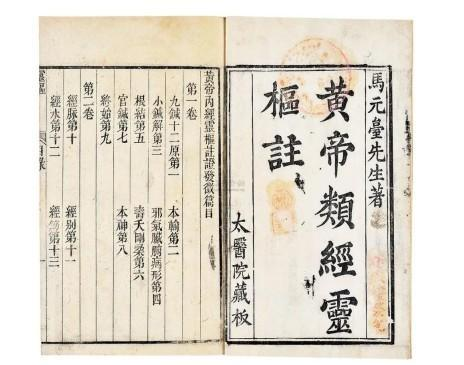 馬元臺先生著
黃帝類經靈
樞註
太醫院藏板
黃帝內經靈樞註證發微篇目
第一卷
九鍼十二原第一　本輸第二
小鍼解第三　邪氣臟腑病形第四
根結第五　壽夭剛柔第六
官鍼第七　本神第八
終始第九
第二卷
經脈第十　經別第十一
經水第十二　經筋第十三
靈樞　目錄